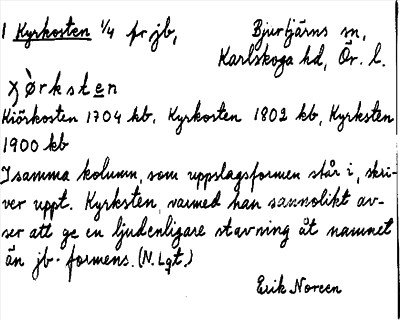 1 Kyrkosten 1/4 fr jb, Bjurtjärns sn,
Karlskoga hd, Ör. l.
χø̀rksten
Kiörkosten 1704 kb, Kyrkosten 1802 kb, Kyrksten
1900 kb
I samma kolumn, som uppslagsformen står i, skri-
ver uppt. Kyrksten, varmed han sannolikt av-
ser att ge en ljudenligare stavning åt namnet
än jb-formens. (N. Lgt.)
Erik Noreen